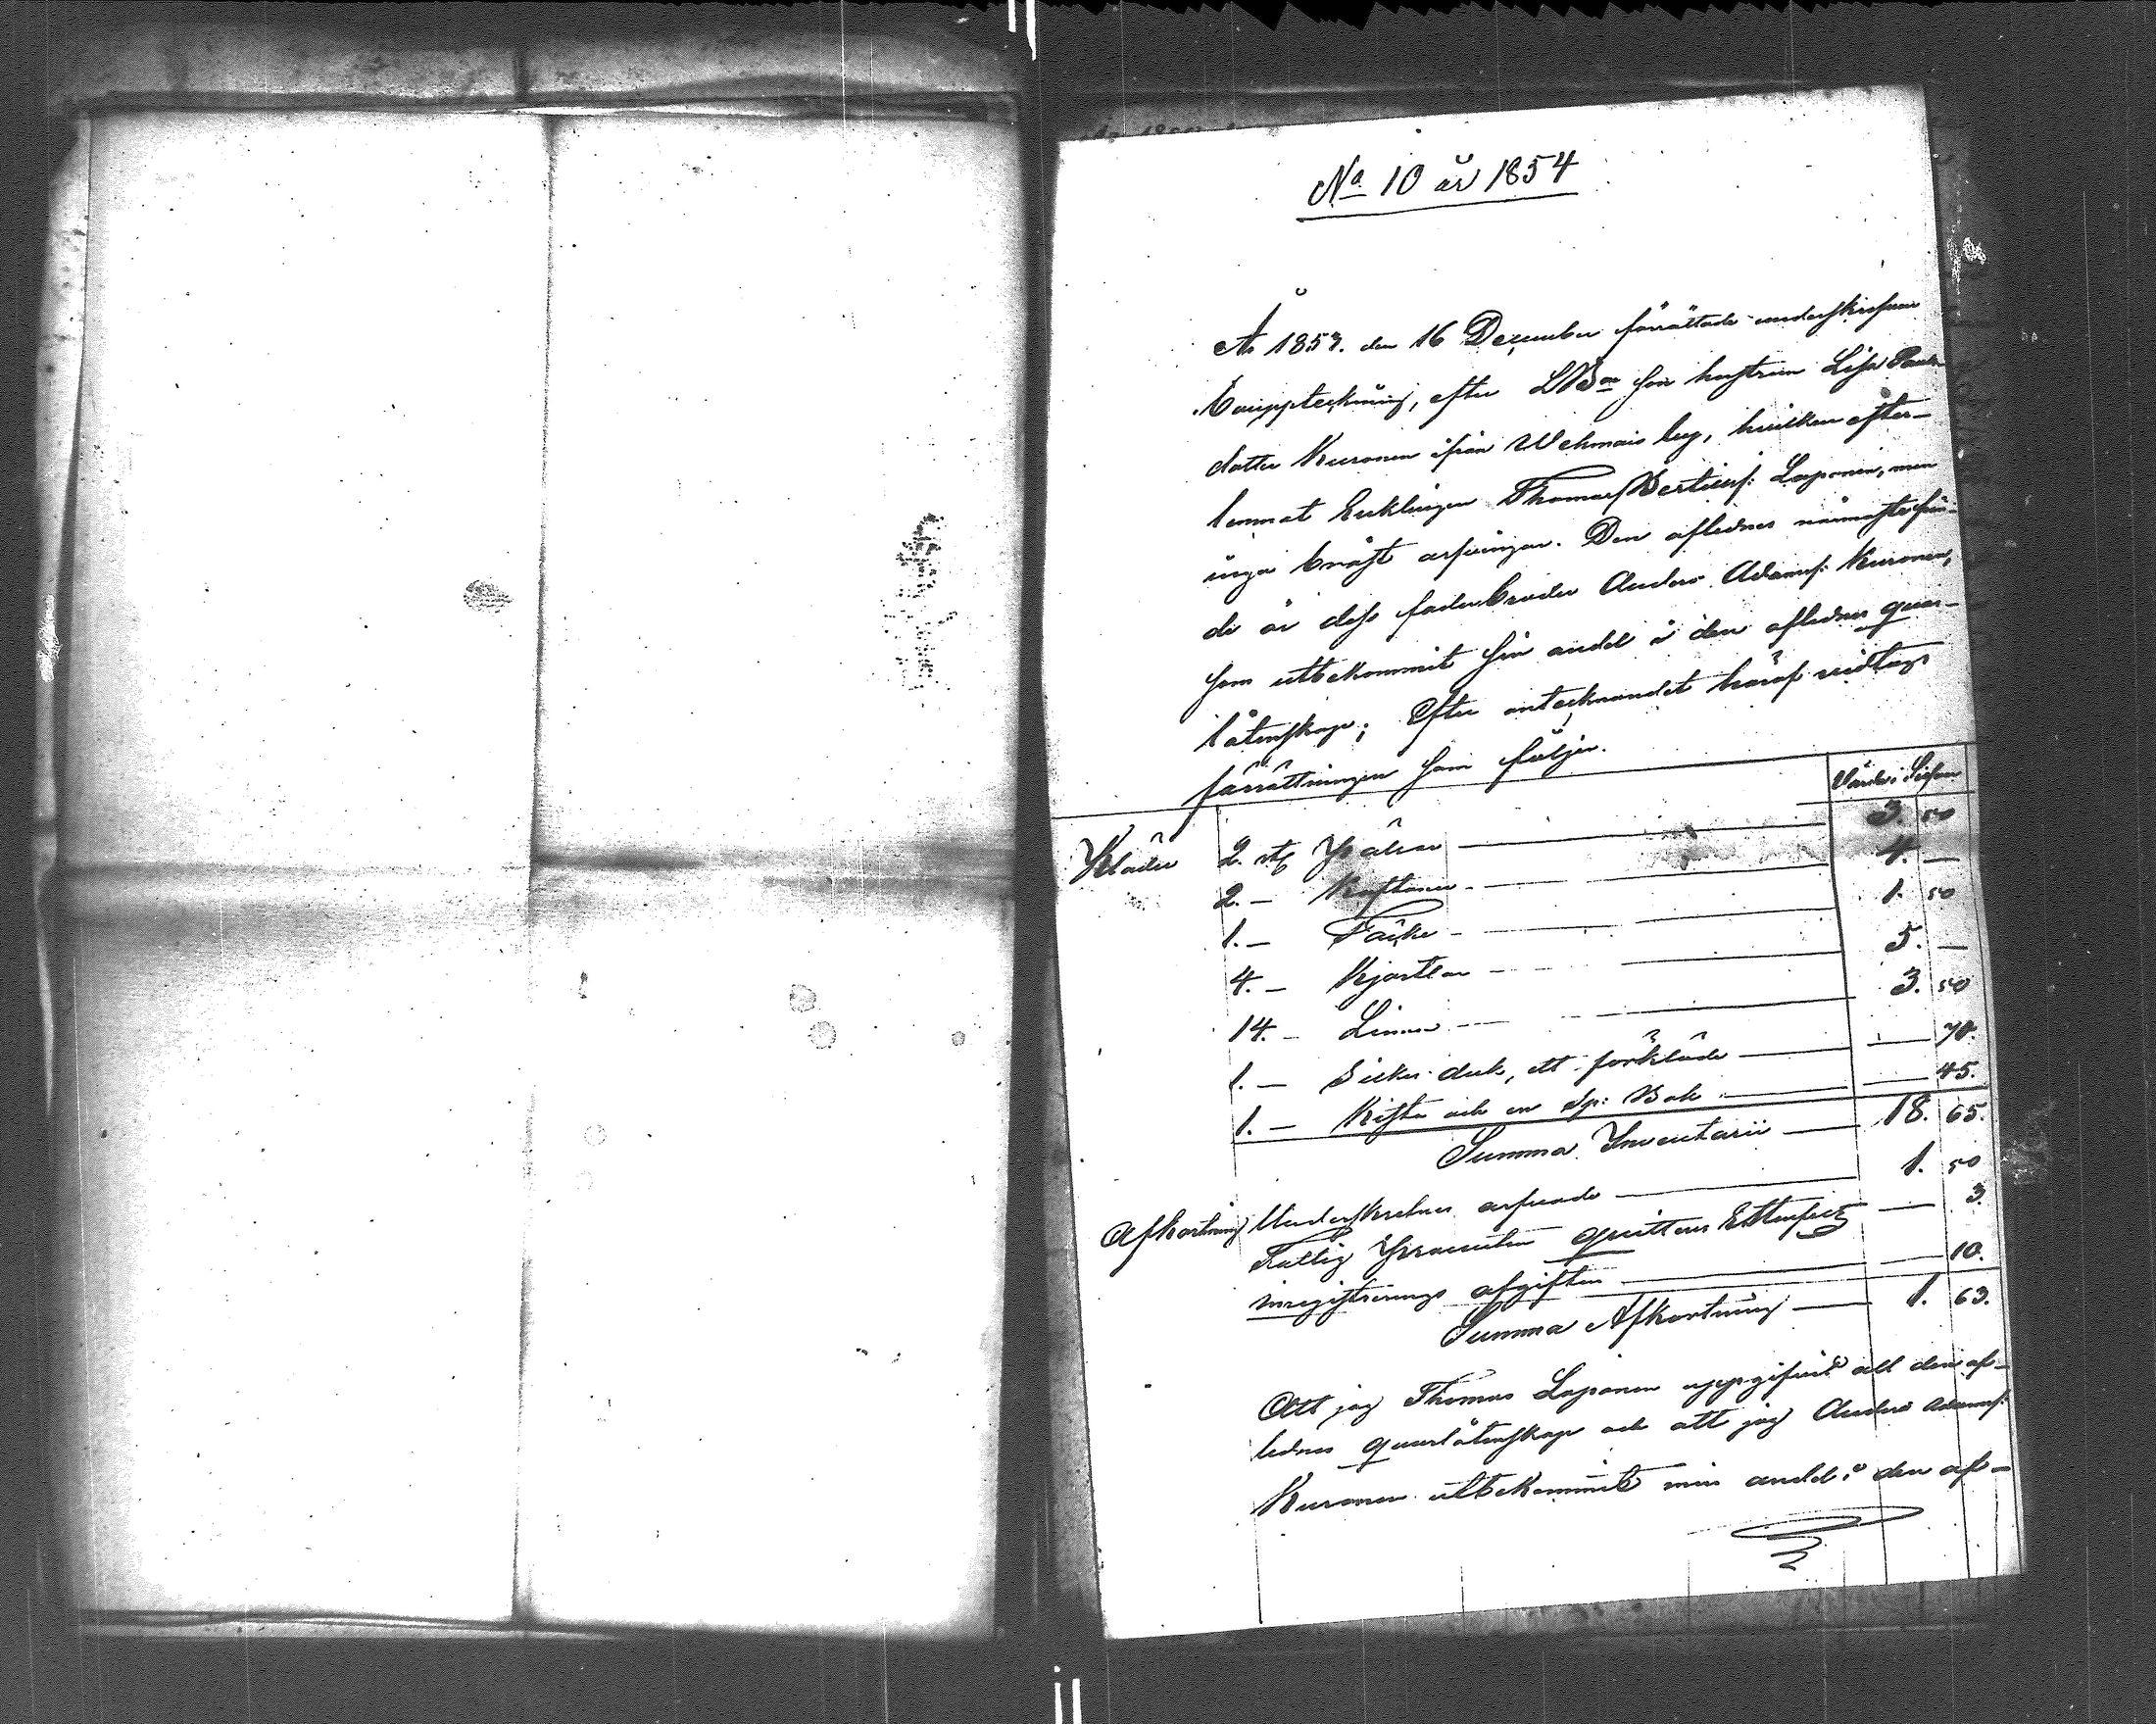 No 10 år 1854
År 1853. den 16 December förrättade underskrefven
bouppteckning, efter hustrun Lisa Pauls
dotter Kuronen ifrån Wehmais by, hvilken efter-
lemnat Enklingen Thomas Bertilsf: Laponen, men
inga bröst arfvingar. Den aflednes närmaste
de är dess faderbroder Anders Adamsf: Kuronen,
som utbekommit sin andel i den aflednes quar-
låtenskap; Efter antecknandet häraf vidtogs
förrättningen som följer.
Värde i Silfver
Kläder 2. st. Tröjor 3. 50
2. — Kaftaner 4. —
1. — Täcke 1. 50
4. — Kjortlar 5. —
14. — Linnen 3. 50
1. — Silkes duk, ett förkläde — 70.
1. — Kista och en Bok — 45.
Summa Inventarii 18. 65.
Afkortning Underskrefnes arfvode 1. 50
Fattig Procenten quitteras — 3.
inregistrerings afgiften — 10.
Summa Afkortning 1. 63.
Att jag Thomas Laponen uppgifvit all den af-
lednes quarlåtenskap och att jag Anders Adamsf:
Kuronen utbekommit min andel i den af-